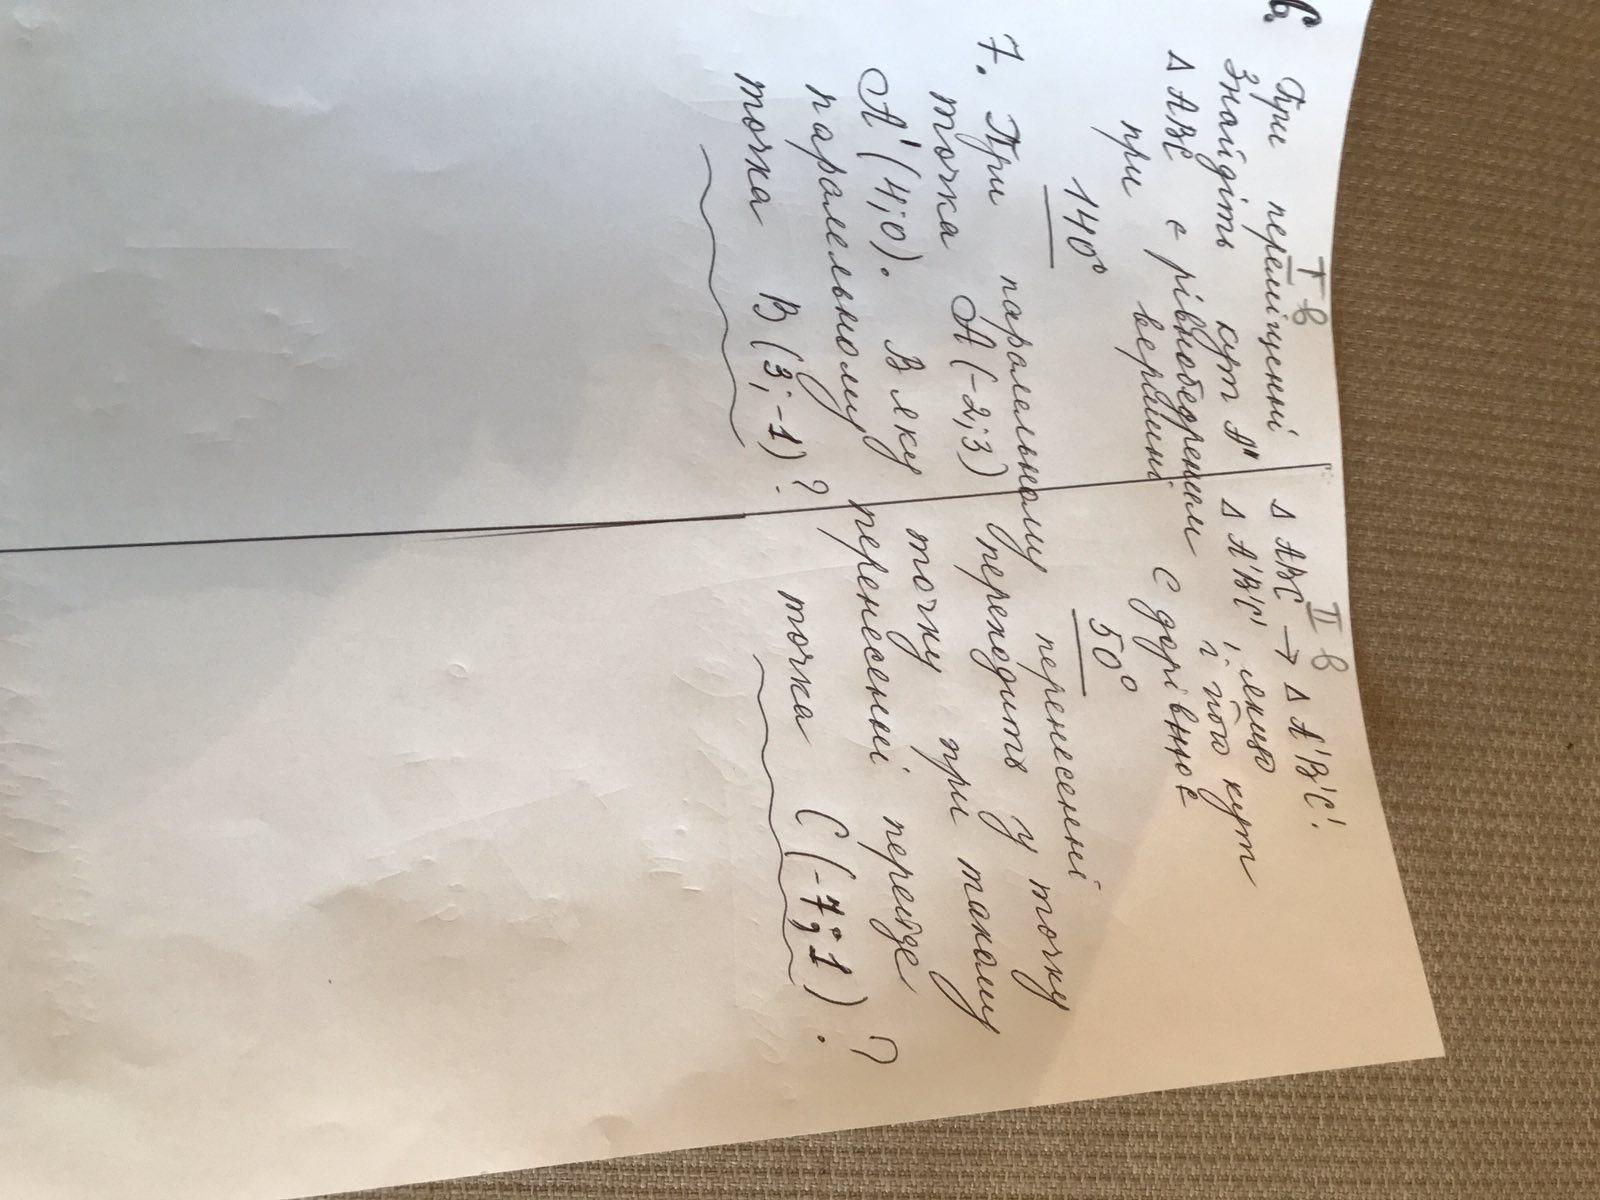 І в ІІ в
6. При переміщенні Δ ABC → Δ A'B'C'.
Знайдіть кут A" Δ A'B'C', якщо
Δ ABC є рівнобедреним і його кут
при вершині C дорівнює
140° 50°
7. При паралельному перенесенні
точка A(-2;3) переходить у точку
A'(4;0). В яку точку при такому
паралельному перенесенні перейде
точка B(3;-1)? точка C(-7;1)?